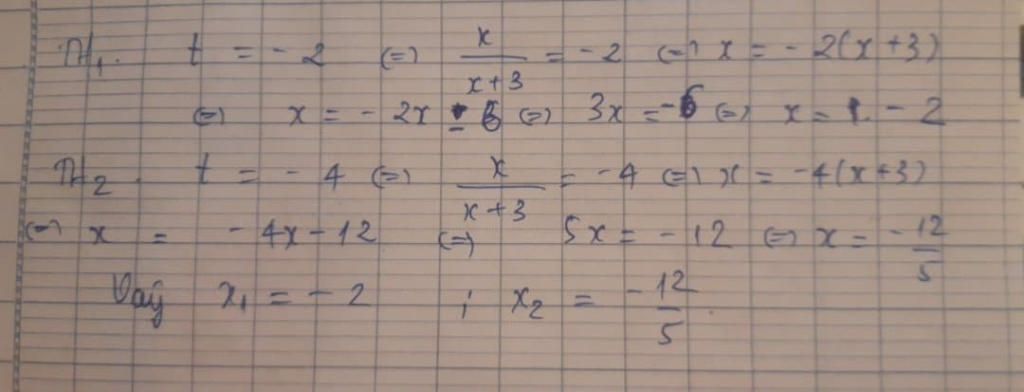 TH1. t = -2 (=) x/(x+3) = -2 (=) x = -2(x+3)
(=) x = -2x - 6 (=) 3x = -6 (=) x = -2
TH2. t = -4 (=) x/(x+3) = -4 (=) x = -4(x+3)
(=) x = -4x-12 (=) 5x = -12 (=) x = -12/5
Vậy x1 = -2 ; x2 = -12/5